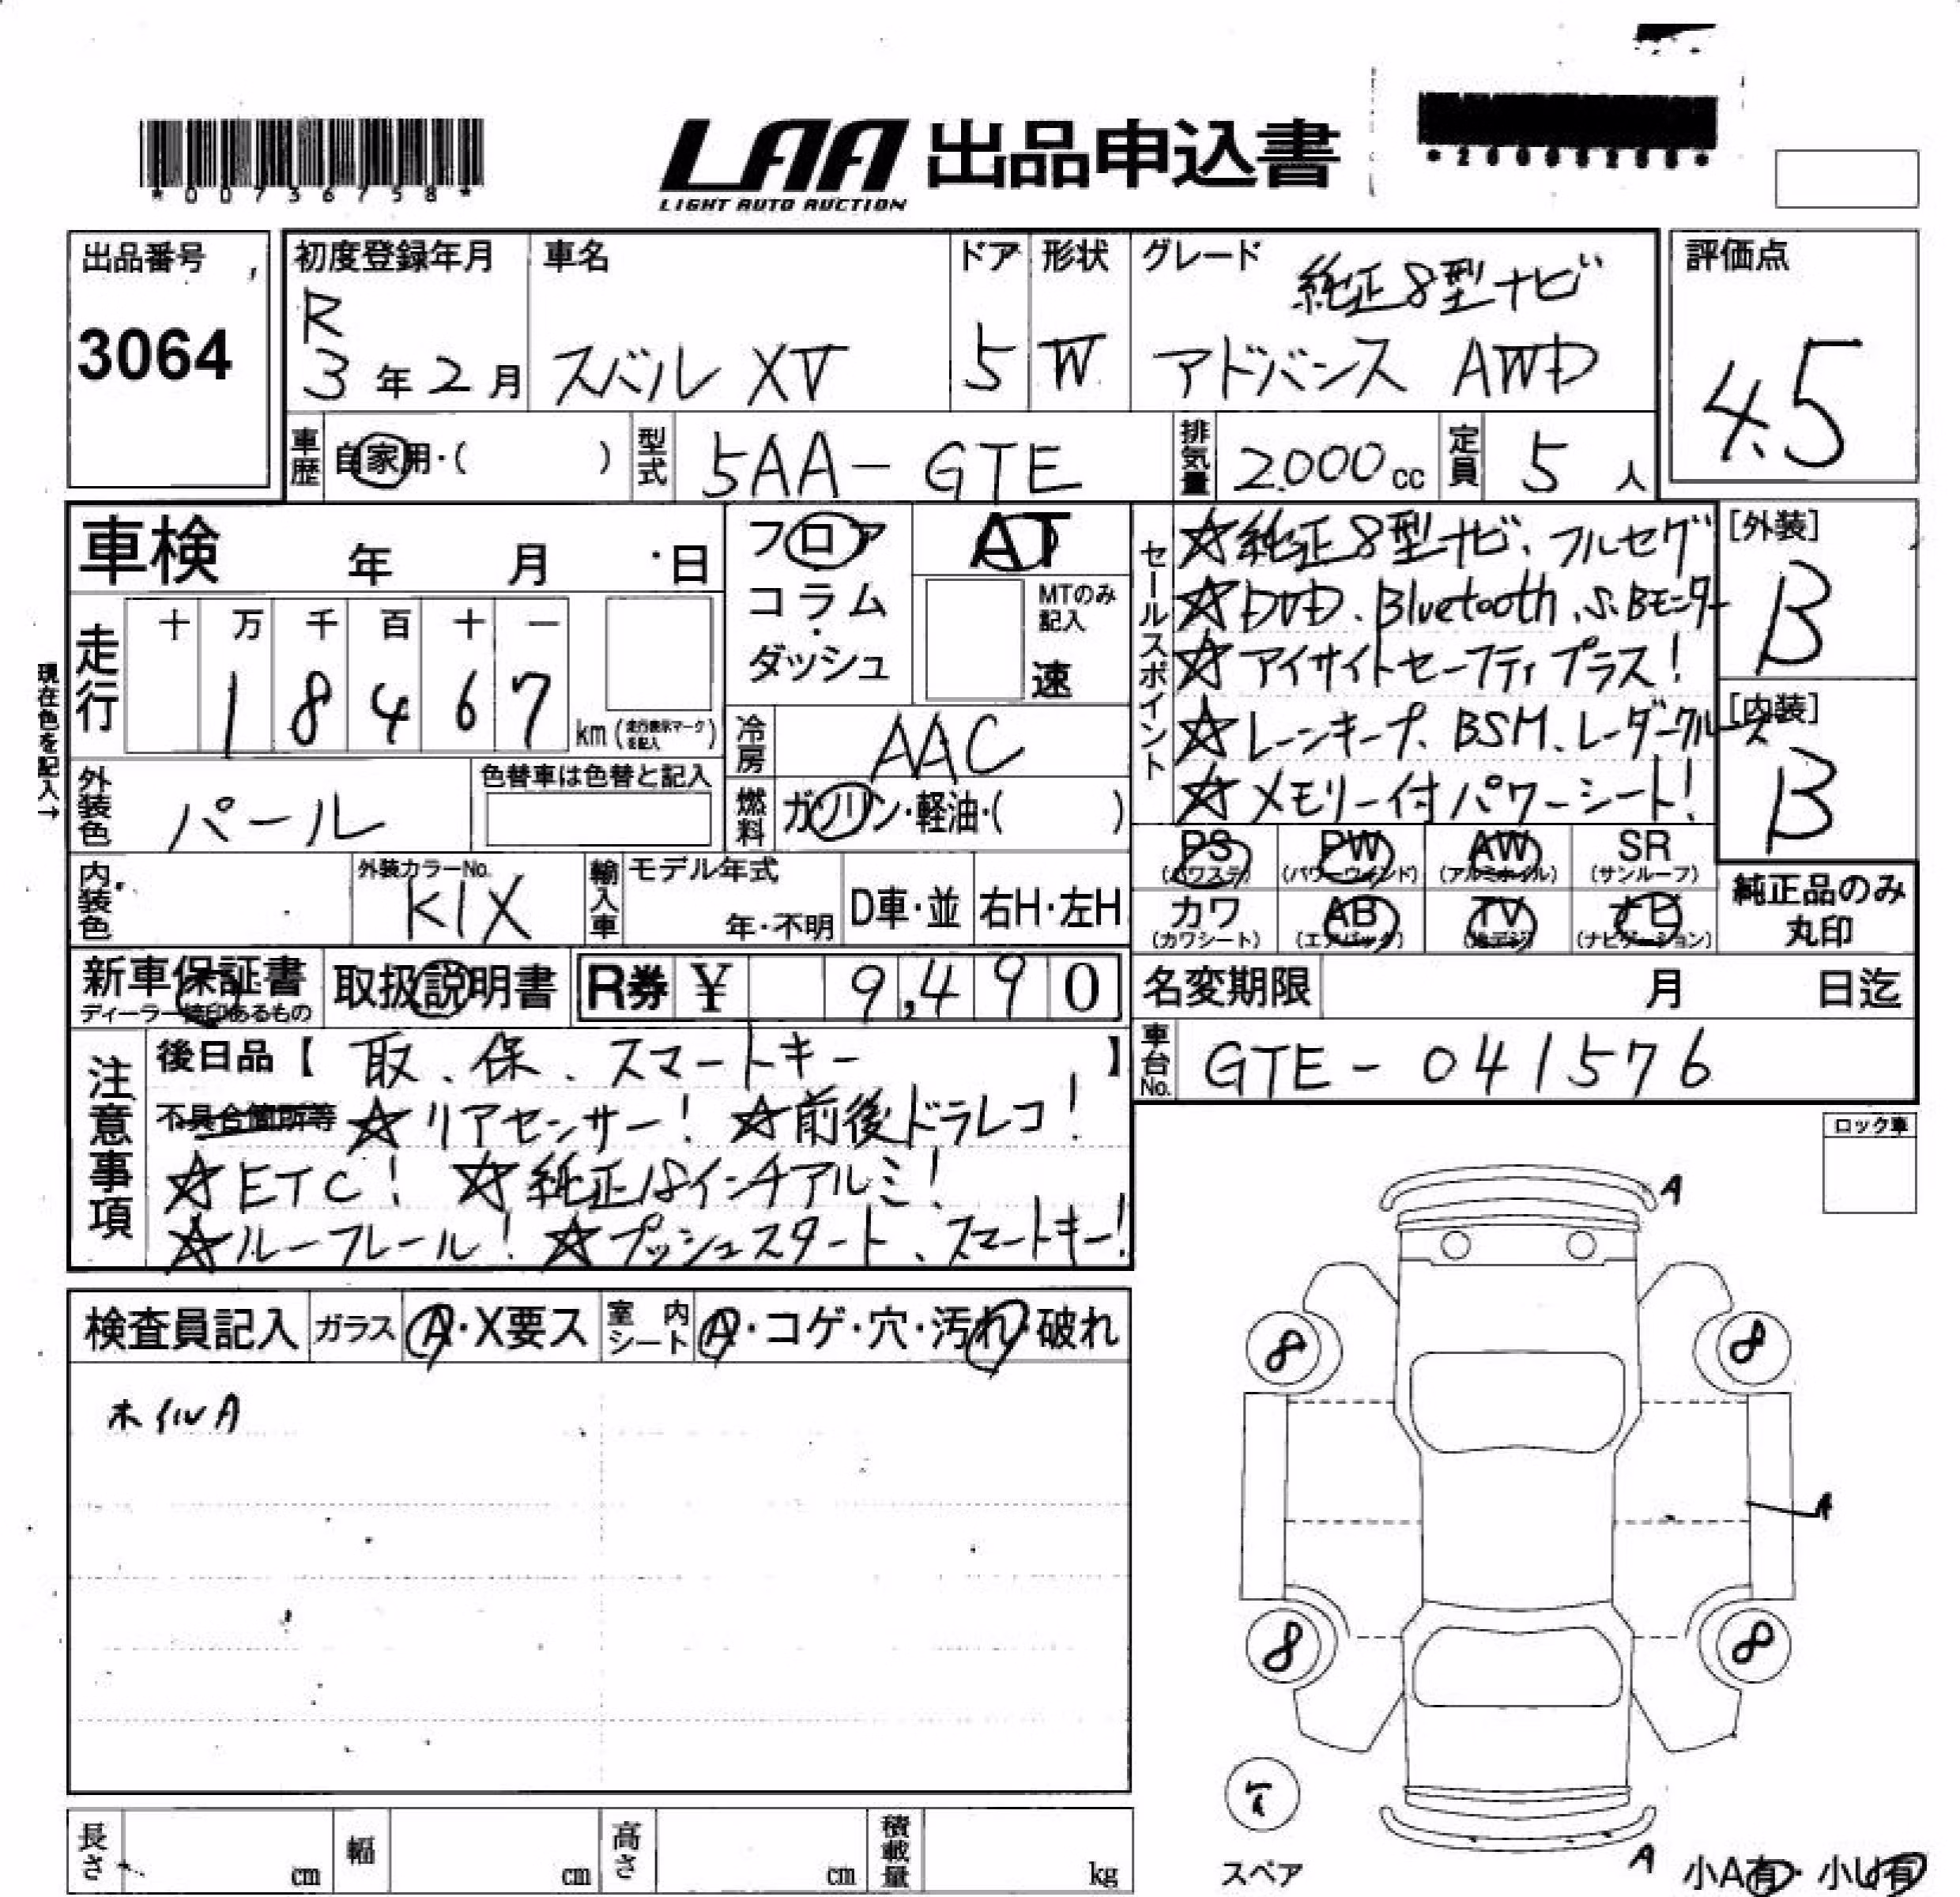 *00736758*
LAA 出品申込書
LIGHT AUTO AUCTION
出品番号
3064
初度登録年月
R
3年2月
車名
スバル XV
ドア
5
形状
W
グレード
純正8型ナビ
アドバンス AWD
評価点
4.5
車歴
自家用・( )
型式
5AA-GTE
排気量
2000cc
定員
5人
車検 年 月 日
フロア
コラム
・
ダッシュ
AT
MTのみ記入
速
セールスポイント
☆純正8型ナビ、フルセグ
☆DVD、Bluetooth、S、Bモニター
☆アイサイトセーフティプラス!
☆レーンキープ、BSM、レーダークルーズ
☆メモリー付パワーシート!
[外装]
B
[内装]
B
現在色を記入→
走行
十 万 千 百 十 一
1 8 4 6 7
km(走行表示マークを記入)
冷房
AAC
外装色
パール
色替車は色替と記入
燃料
ガソリン・軽油・( )
PS (パワステ)
PW (パワーウインド)
AW (アルミホイル)
SR (サンルーフ)
カワ (カワシート)
AB (エアバック)
TV (地デジ)
ナビ (ナビゲーション)
純正品のみ
丸印
内装色
外装カラーNo.
K1X
輸入車
モデル年式
年・不明
D車・並
右H・左H
新車保証書
ディーラー捺印あるもの
取扱説明書
R券 ¥ 9,490
名変期限 月 日迄
車台No.
GTE-041576
注意事項
後日品【 取、保、スマートキー 】
不具合箇所等 ☆リアセンサー! ☆前後ドラレコ!
☆ETC! ☆純正18インチアルミ!
☆ルーフレール! ☆プッシュスタート、スマートキー!
ロック車
検査員記入
ガラス
A・X要ス
室内シート
A・コゲ・穴・汚れ・破れ
ホイルA
A
8
8
A
8
8
T
スペア
A
小A有・小U有
長さ cm
幅 cm
高さ cm
積載量 kg